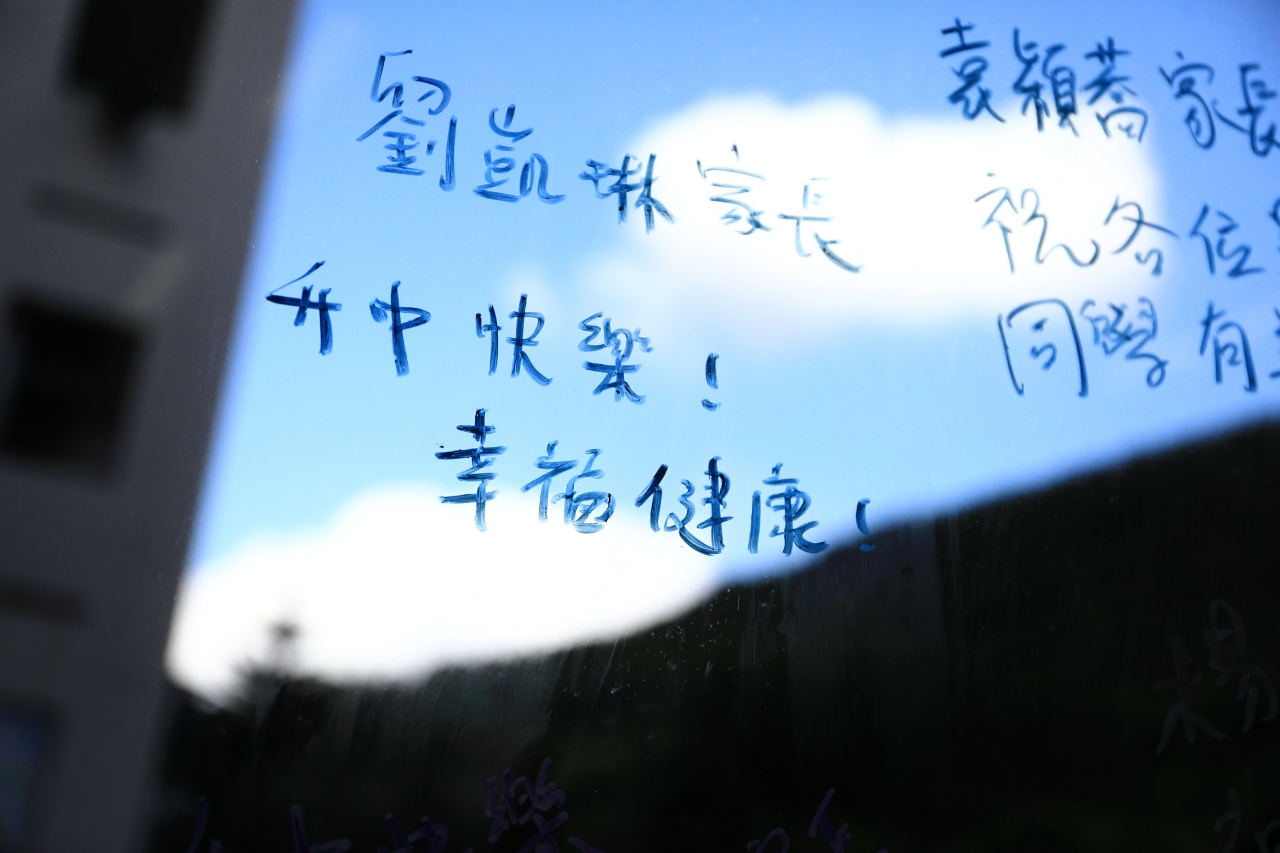 劉凱琳家長
升中快樂!
幸福健康!
袁穎蕎家長
祝各位
同學有
楊